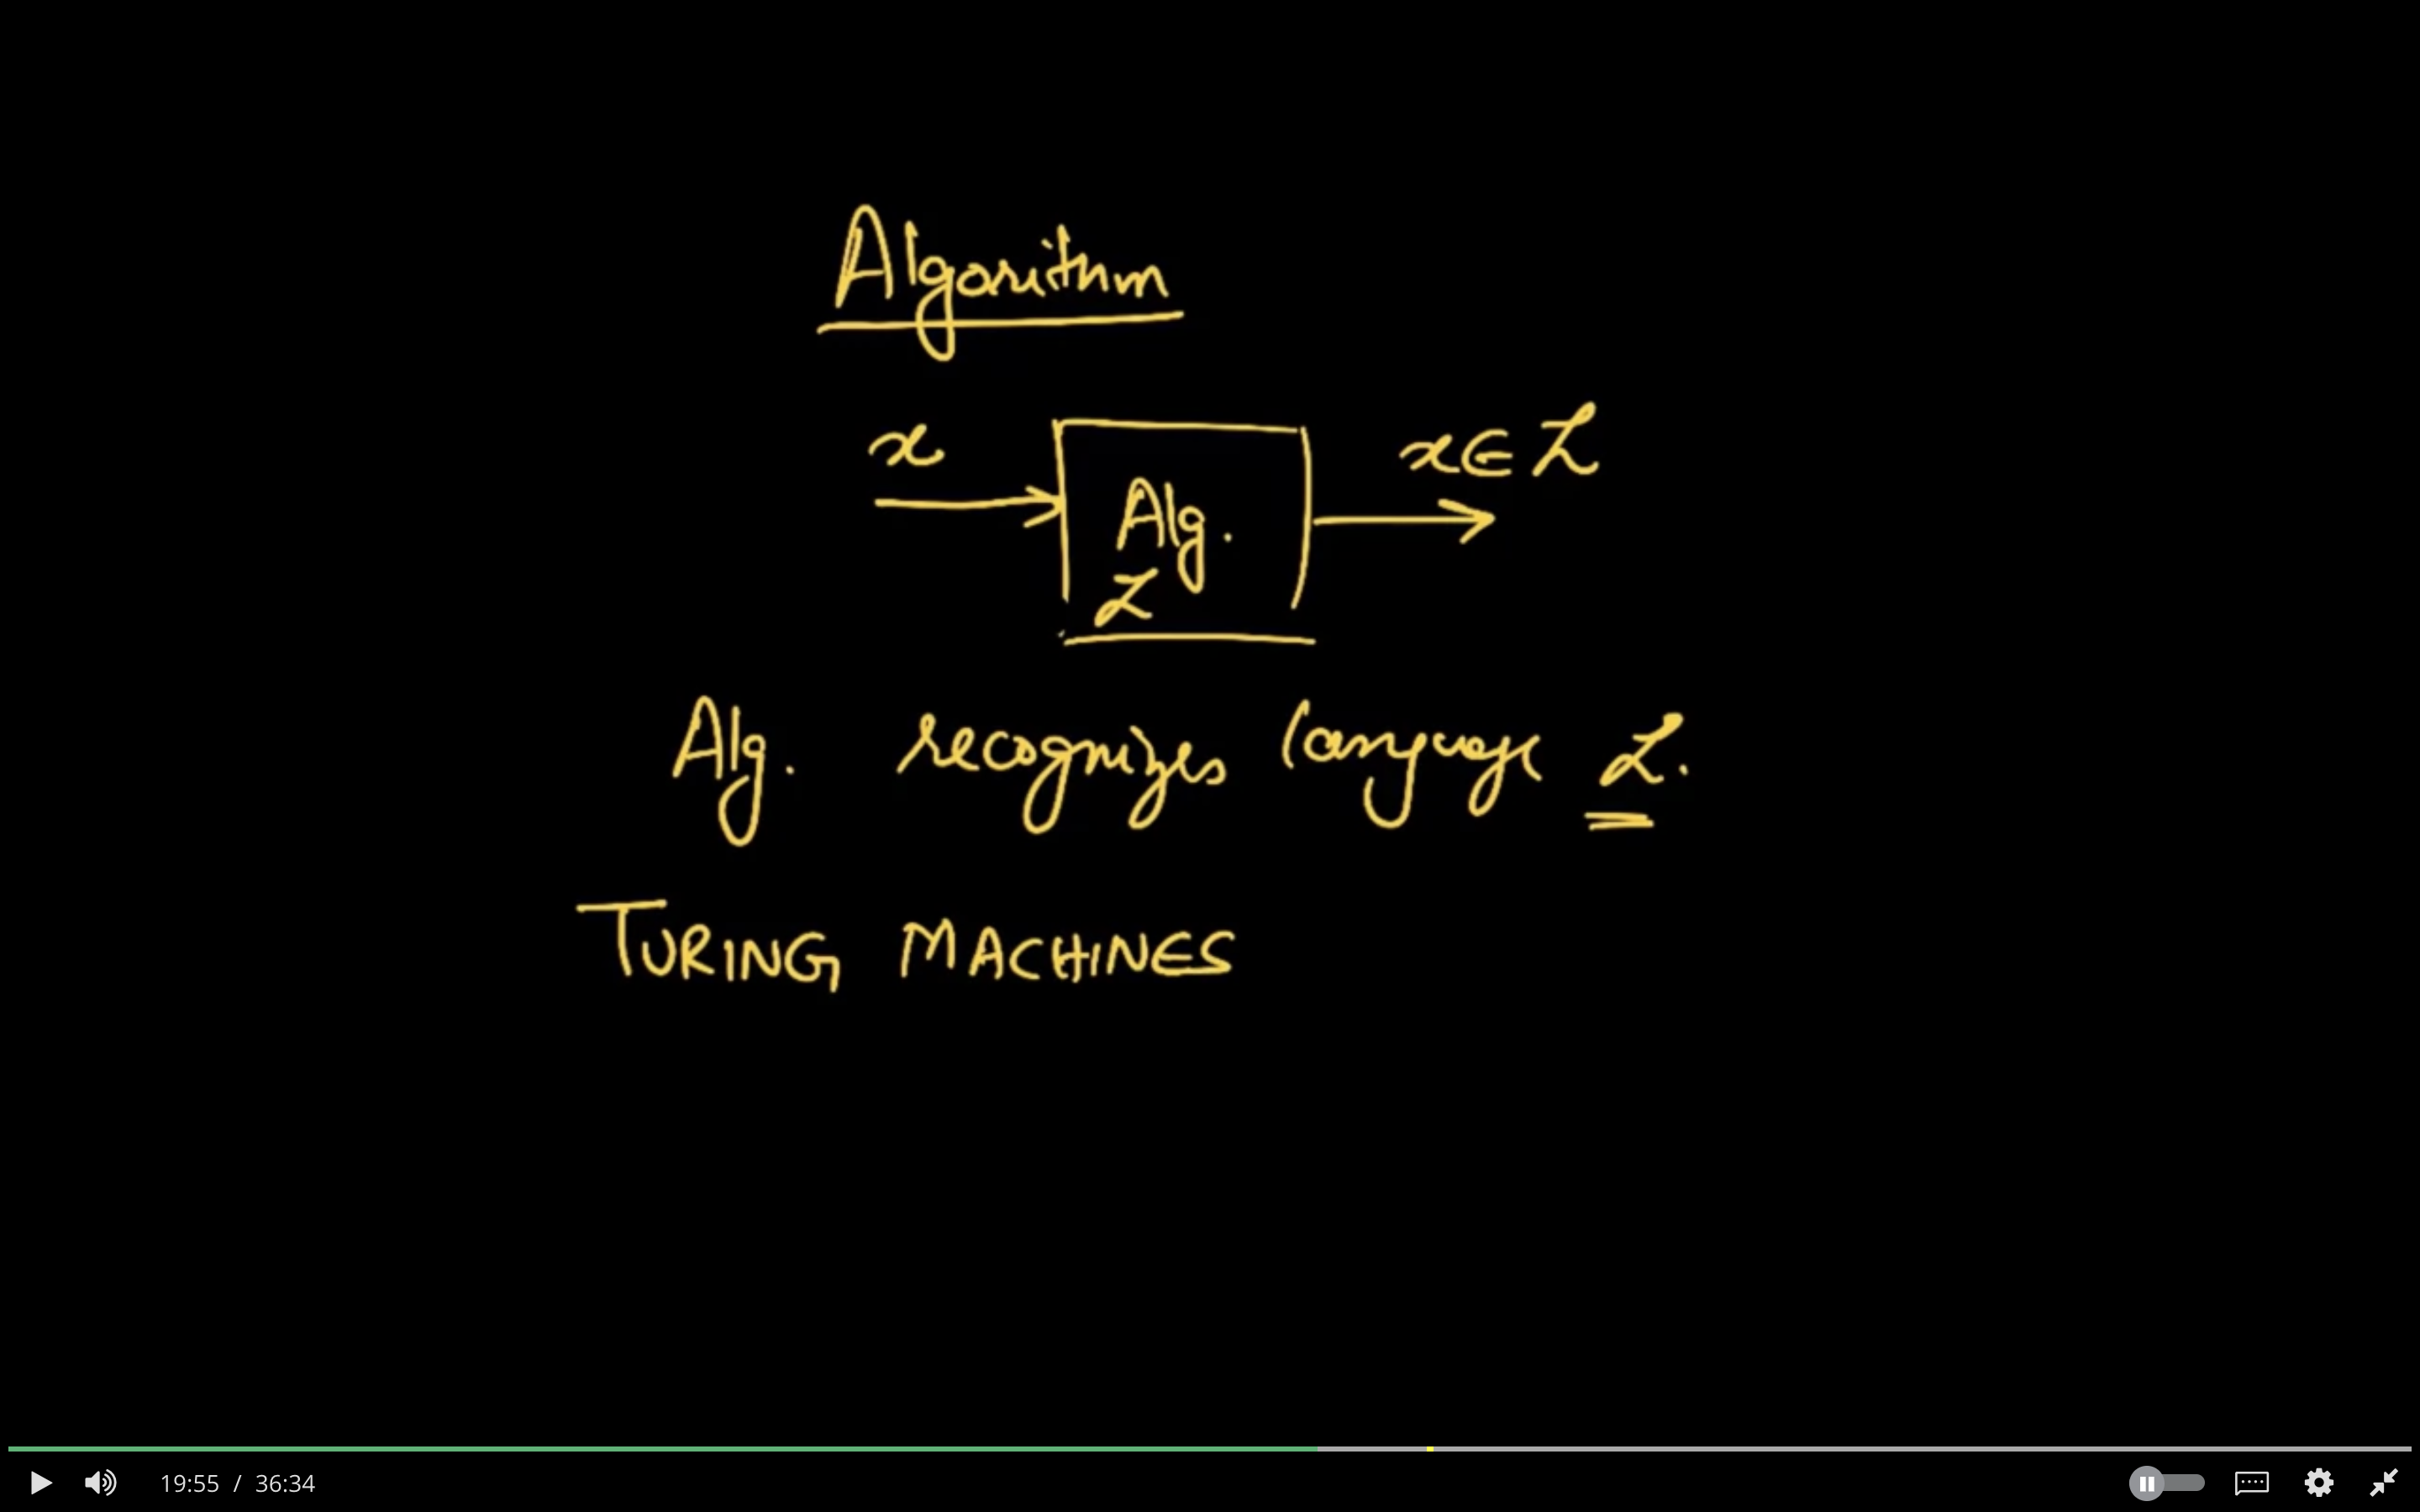 Algorithm
x
x∈L
Alg.
L
Alg. recognizes language L.
TURING MACHINES
19:55 / 36:34